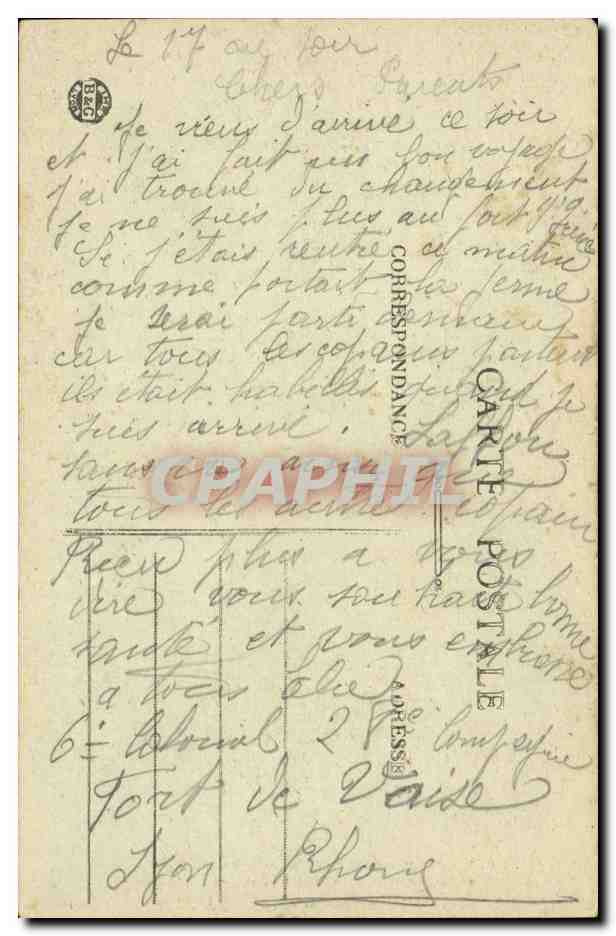 Le 17 au soir
Chers Parents
Je viens d'arrivé ce soir
et j'ai fait un bon voyage
j'ai trouvé du changement
Je ne suis plus au fort
Si j'étais rentré ce matin
comme portait la perme
je serai parti
car tous les copains partent
ils était habellés quand je
suis arrivé.
tous les autre copain
Rien plus a vous
dire vous souhaite bonne
santé et vous embrasse
a tous
6e Colonial 28e Compagnie
Fort de Vaise
Lyon Rhone
CARTE POSTALE
CORRESPONDANCE
ADRESSE
B&G
LYON
CPAPHIL